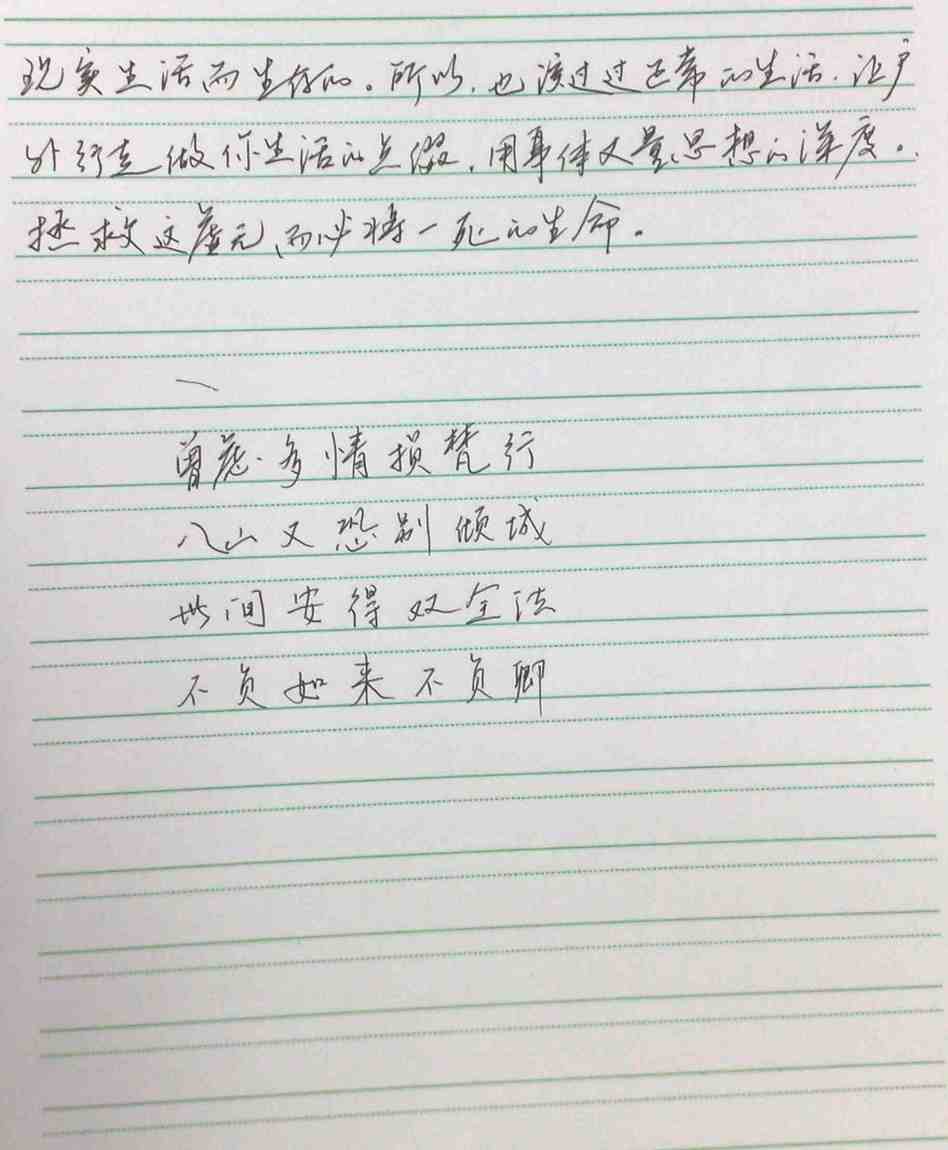 现实生活而生存的。所以,也该过过正常的生活,让户
外行走做你生活的点缀,用身体丈量思想的深度。
拯救这虚无、而必将一死的生命。
曾虑多情损梵行
入山又恐别倾城
世间安得双全法
不负如来不负卿